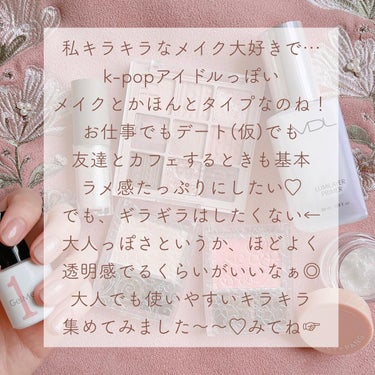 私キラキラなメイク大好きで…
k-popアイドルっぽい
メイクとかほんとタイプなのね！
お仕事でもデート(仮)でも
友達とカフェするときも基本
ラメ感たっぷりにしたい♡
でも、ギラギラはしたくない←
大人っぽさというか、ほどよく
透明感でるくらいがいいなぁ◎
大人でも使いやすいキラキラ
集めてみました〜〜♡みてね☞
VDL
LUMILAYER
PRIMER
1